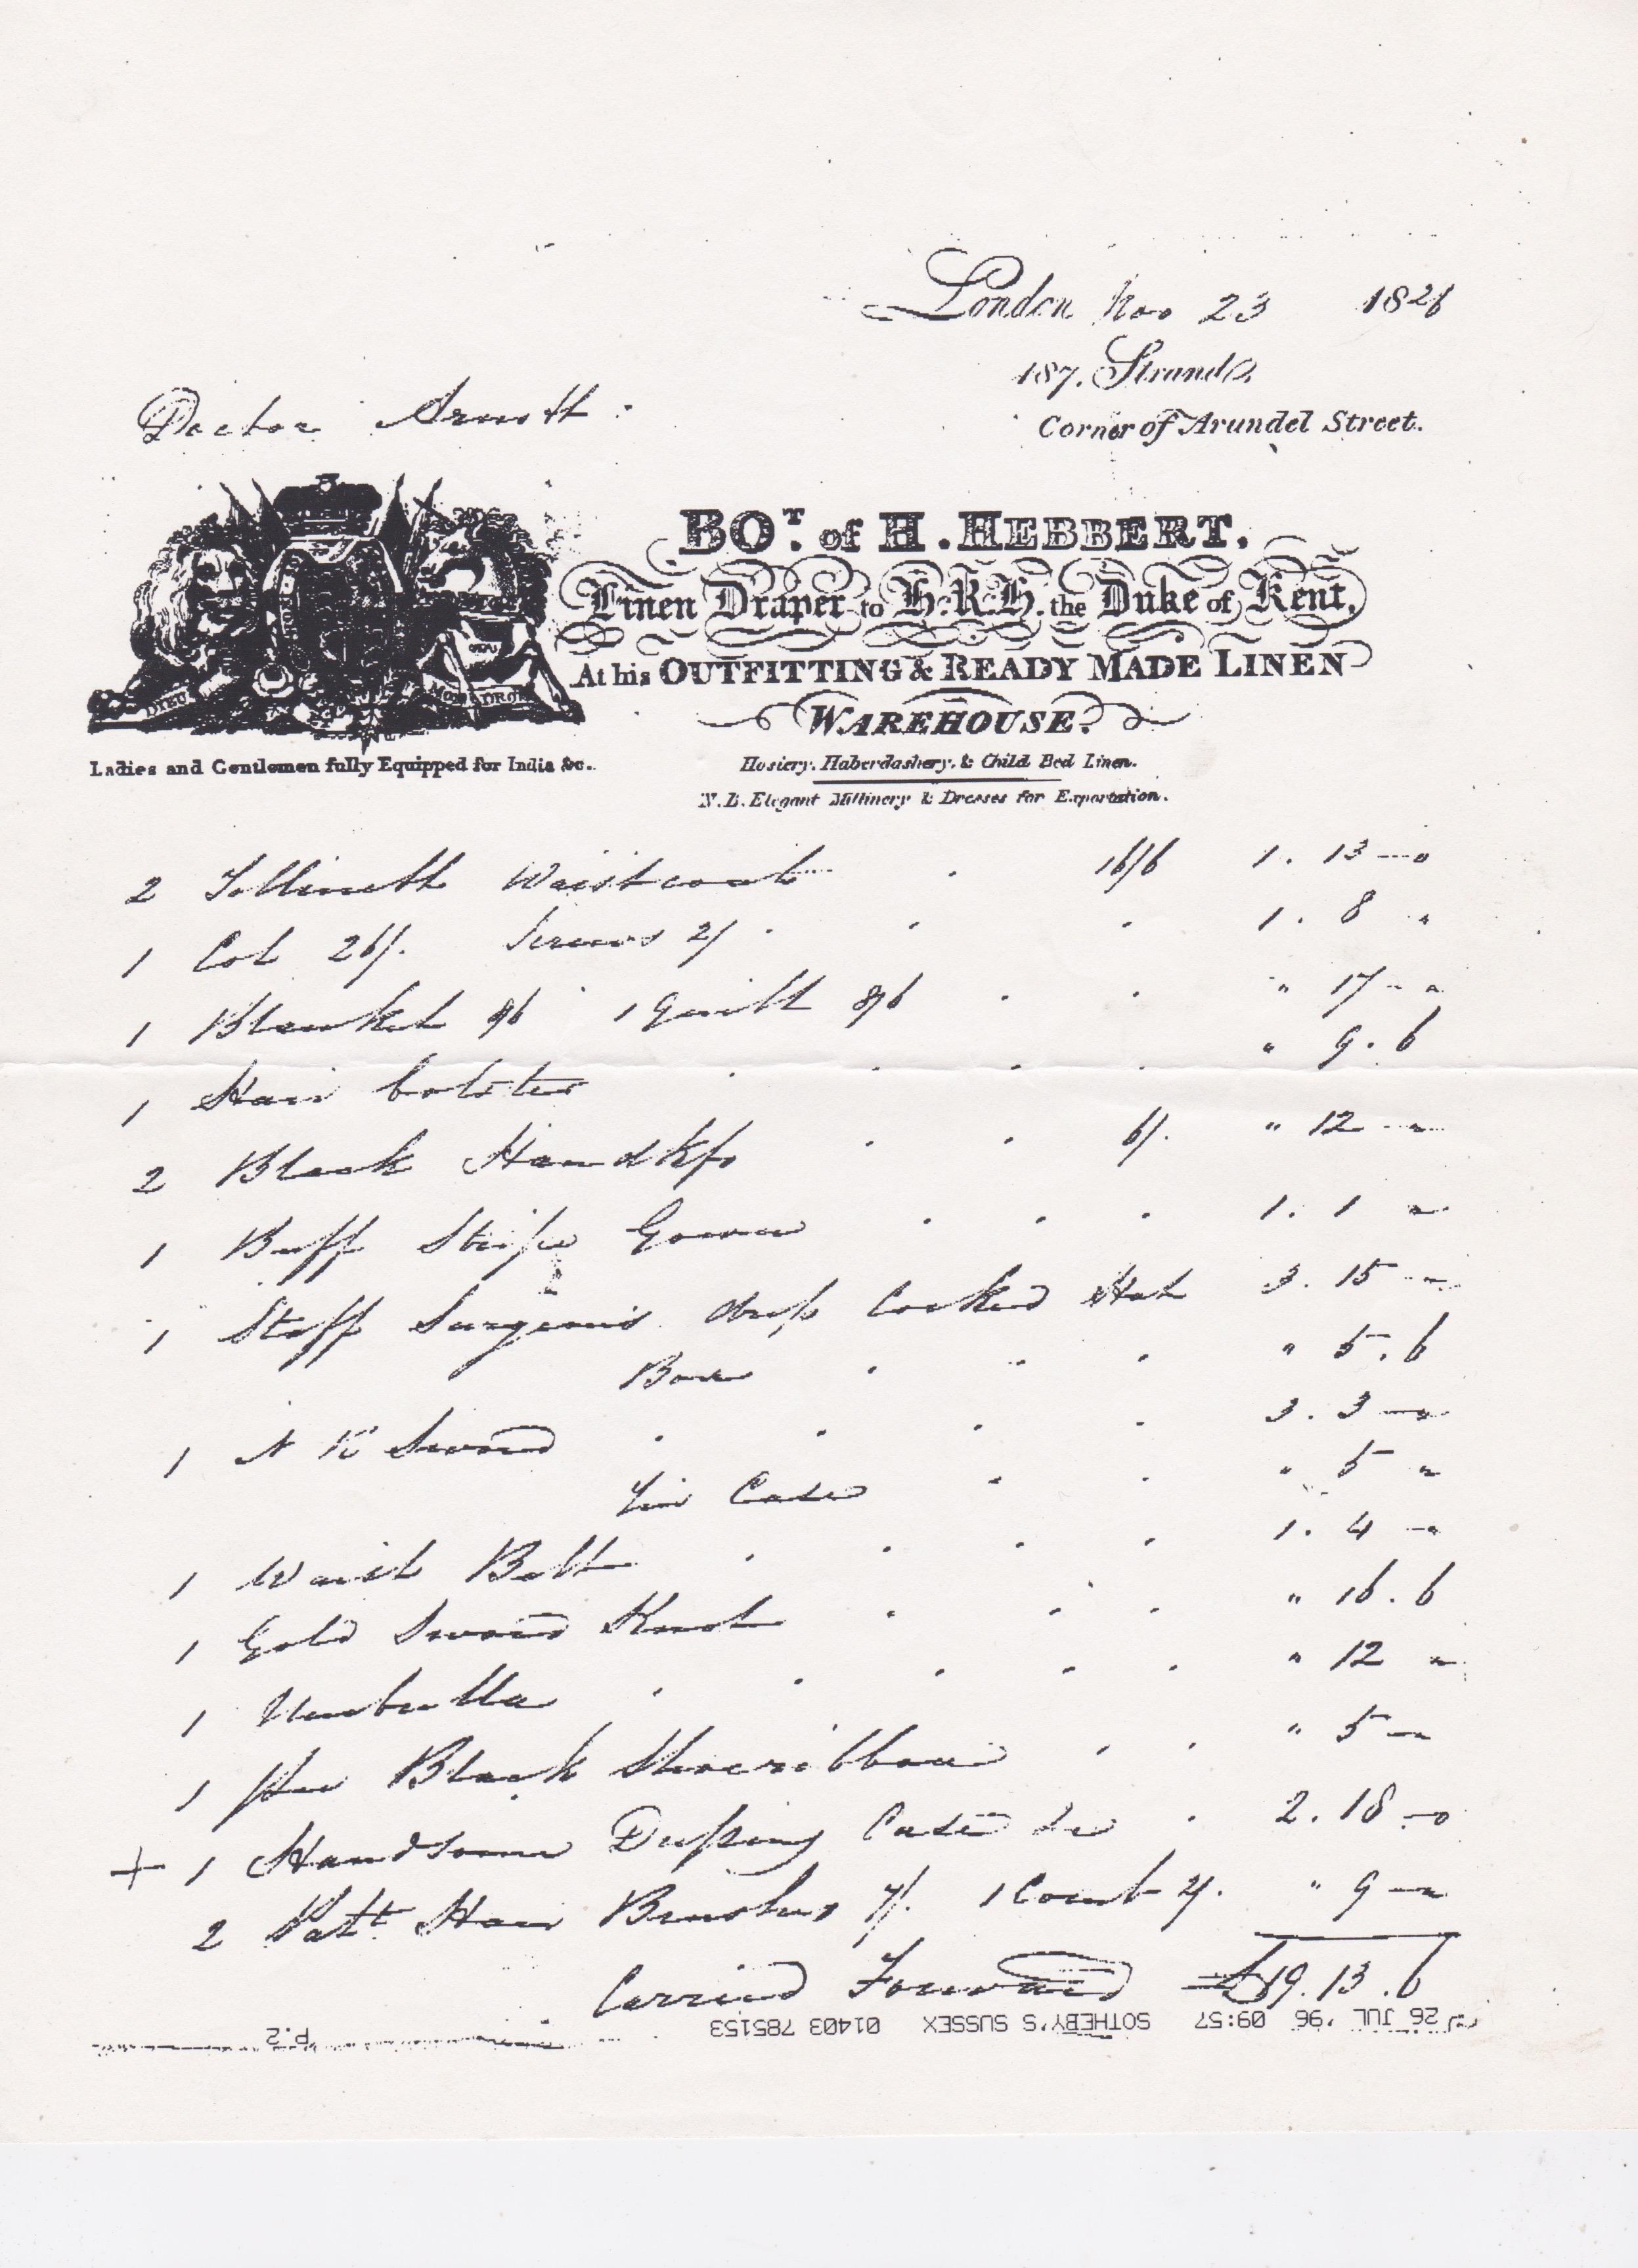 London Nov 23 1821
187. Strand
Corner of Arundel Street.
Doctor Arnott
BOT. of H. HEBBERT,
Linen Draper to H.R.H. the Duke of Kent,
At his OUTFITTING & READY MADE LINEN
WAREHOUSE.
DIEU ET MON DROIT
Ladies and Gentlemen fully Equipped for India &c.
Hosiery, Haberdashery, & Child Bed Linen.
N.B. Elegant Millinery & Dresses for Exportation.
2 Tollineth Waistcoats 16/6 1. 13 -- "
1 Cot 26/. Screws 2/ 1. 8 "
1 Blanket 8/6 1 Quilt 8/6 " 17 - "
1 Hair bolster " 9. 6
2 Black Handkfs 6/. " 12 -- "
1 Buff Stripe Gown 1. 1 "
1 Staff Surgeons dress Cocked Hat 3. 15 - "
Box " 5. 6
1 N R Sword 3. 3 - "
Tin Case " 5 "
1 Waist Belt 1. 4 - "
1 Gold Sword Knot " 16. 6
1 Umbrella " 12 "
1 pce Black Shoeribbon " 5 -
+ 1 Handsome Dressing Case &c 2. 18 - 0
2 Patt. Hair Brushes 7/. 1 Comb 2/. " 9 - "
Carried Forward £19. 13. 6
26 JUL '96 09:57 SOTHEBY'S SUSSEX 01403 785153 P.2